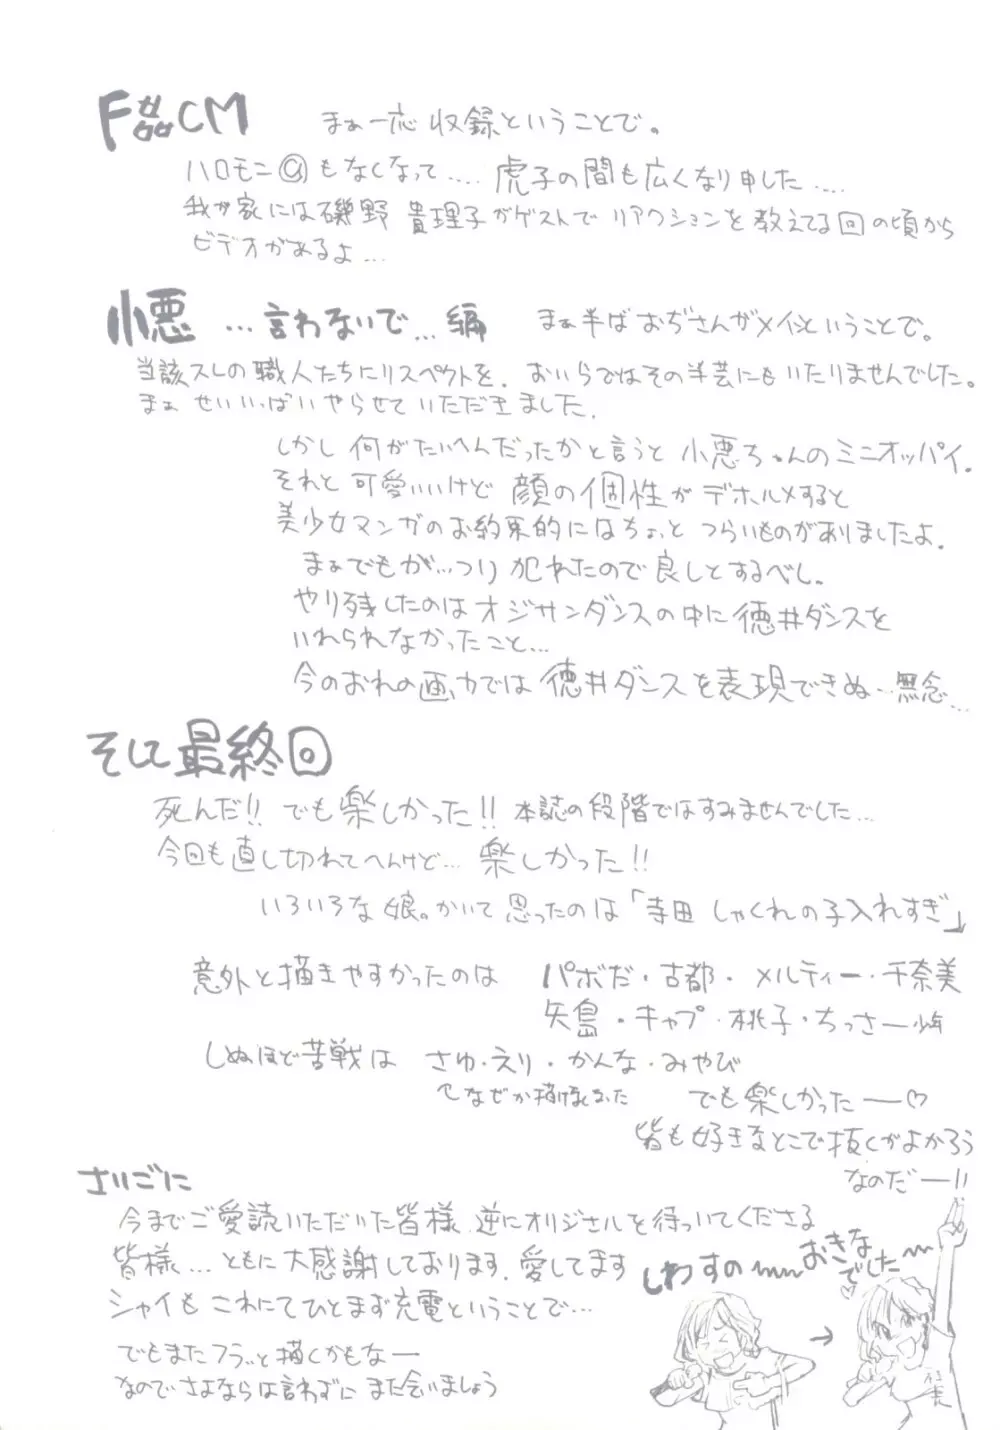 F姦CM　まぁ一応収録ということで。
ハロモニ@もなくなって‥‥ 虎子の間も広くなり申した‥‥
我が家には磯野貴理子がゲストでリアクションを教えてる回の頃から
ビデオがあるよ…
小悪 …言わないで…編　まぁ半ばおぢさんがメインということで。
当該スレの職人たちにリスペクトを。おいらではその半芸にもいたりませんでした。
まぁ せいいっぱいやらせていただきました。
しかし何がたいへんだったかと言うと小悪ちゃんのミニオッパイ。
それと可愛いいけど顔の個性がデホルメすると
美少女マンガのお約束的にはちょっとつらいものがありましたよ。
まぁでもが…つり犯れたので良しとするべし。
やり残したのはオジサンダンスの中に徳井ダンスを
いれられなかったこと…
今のおれの画力では徳井ダンスを表現できぬ…無念…
そして最終回
死んだ!! でも楽しかった!! 本誌の段階ではすみませんでした…
今回も直し切れてへんけど… 楽しかった!!
いろいろな娘。かいて思ったのは「寺田 しゃくれの子入れすぎ」
意外と描きやすかったのは パボだ・古都・メルティー・千奈美
矢島・キャプ・桃子・ちっさー少年
しぬほど苦戦は さゆ・えり・かんな・みやび
なぜか
でも楽しかったー♡
皆も好きなとこで抜くがよかろう
なのだー!!
さいごに
今までご愛読いただいた皆様、逆にオリジナルを待っていてくださる
皆様…ともに大感謝しております。愛してます
シャイもこれにてひとまず充電ということで…
でもまたフラっと描くかもなー
なのでさよならは言わずにまた会いましょう
しわすの〰
おきな
でした〰